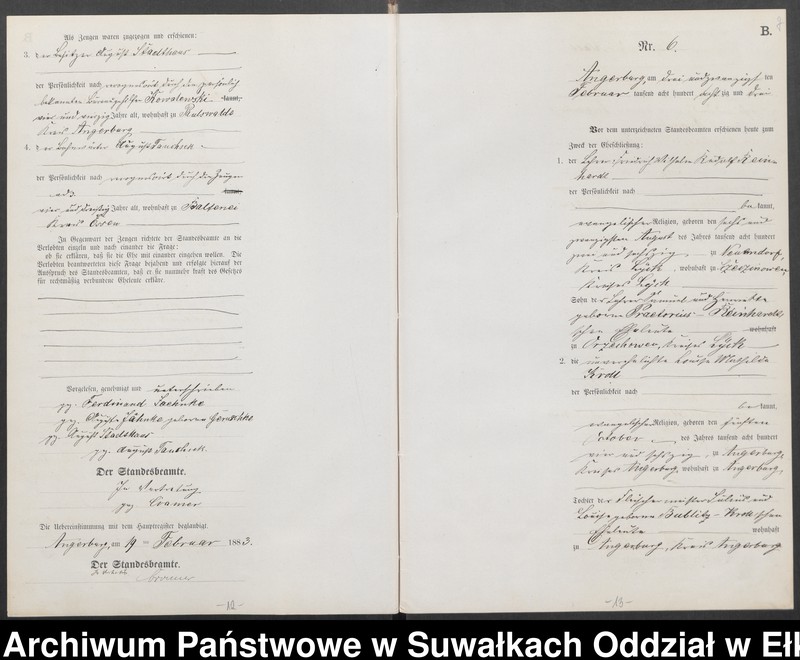 Als Zeugen waren zugezogen und erschienen:
3. der Besitzer August Stadthaus
der Persönlichkeit nach
bekannten Kowalewski kannt,
vier und vierzig Jahre alt, wohnhaft zu
Kreis Angerburg
4. der August
der Persönlichkeit nach durch die Zeugen
ad 3. kannt,
vier und dreißig Jahre alt, wohnhaft zu
Kreis
In Gegenwart der Zeugen richtete der Standesbeamte an die
Verlobten einzeln und nach einander die Frage:
ob sie erklären, daß sie die Ehe mit einander eingehen wollen. Die
Verlobten beantworteten diese Frage bejahend und erfolgte hierauf der
Ausspruch des Standesbeamten, daß er sie nunmehr kraft des Gesetzes
für rechtmäßig verbundene Eheleute erkläre.
Vorgelesen, genehmigt und unterschrieben
gez. Ferdinand Jaehnke
gez. Auguste Jähnke geborene
gez. August Stadthaus
gez. August
Der Standesbeamte.
In Vertretung
gez. Cramer
Die Uebereinstimmung mit dem Hauptregister beglaubigt.
Angerburg, am 9 ten Februar 1883.
Der Standesbeamte.
In Vertretung
Cramer
- 12 -
B.
Nr. 6.
Angerburg, am drei und zwanzigsten
Februar tausend acht hundert achtzig und drei
Vor dem unterzeichneten Standesbeamten erschienen heute zum
Zweck der Eheschließung:
1. der Lehrer Friedrich Wilhelm Rudolf Rein
hardt
der Persönlichkeit nach
be kannt,
evangelischer Religion, geboren den sechs und
zwanzigsten August des Jahres tausend acht hundert
und sechszig, zu Neuendorf,
Kreis Lyck, wohnhaft zu
Kreises Lyck
Sohn des Lehrers Samuel und Henriette
geborene Praetorius - Reinhardt
schen Eheleute wohnhaft
zu Orzechowen, Kreises Lyck
2. die unverehelichte Louise Mathilde
Kroll
der Persönlichkeit nach
be kannt,
evangelischer Religion, geboren den fünften
October des Jahres tausend acht hundert
vier und sechszig, zu Angerburg,
Kreises Angerburg, wohnhaft zu Angerburg,
Tochter des Fleischermeister Julius und
Louise geborene Bublitz - Kroll schen
Eheleute wohnhaft
zu Angerburg, Kreis Angerburg
- 13 -
Archiwum Państwowe w Suwałkach Oddział w Ełk